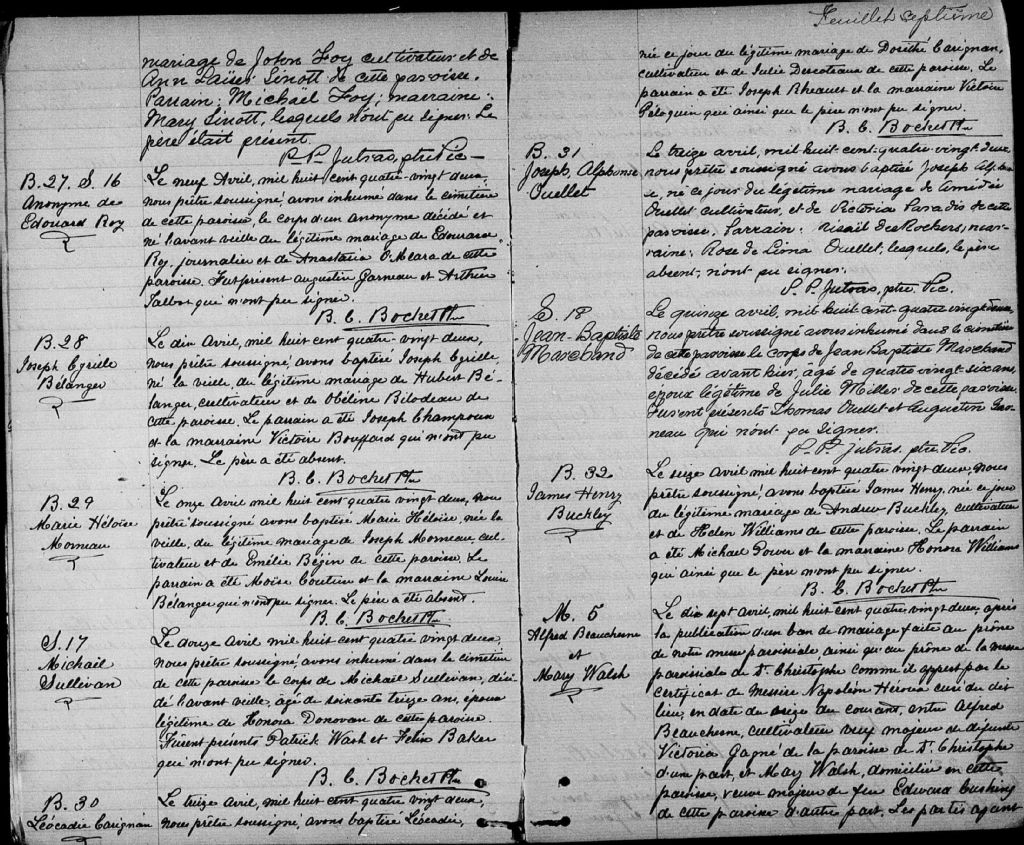 mariage de John Foy cultivateur et de
Ann Sinott de cette paroisse.
Parrain: Michaël Foy; marraine:
Mary Sinott, lesquels n'ont pu signer. Le
père était présent.
P. P. Jutras, ptre Vic-
B. 27. S. 16
Anonyme de
Edouard Roy
Le neuf Avril, mil huit cent quatre-vingt deux,
nous prêtre soussigné, avons inhumé dans le cimetière
de cette paroisse, le corps d'un anonyme décidé et
né l'avant veille du légitime mariage de Edouard
Roy, journalier et de Anastasia O'Meara de cette
paroisse. Fut présent augustin Garneau et Arthur
Talbot qui n'ont pu signer.
B. C. Bochet Ptr
B. 28
Joseph Cyrille
Bélanger
Le dix Avril, mil huit cent quatre-vingt deux,
nous prêtre soussigné, avons baptisé Joseph Cyrille
né la vieille, du légitime mariage de Hubert Bé-
langer, cultivateur et de Obéline Bilodeau de
cette paroisse. Le parrain a été Joseph Champoux
et la marraine Victoire Bouffard qui n'ont pu
signer. Le père a été absent.
B. C. Bochet Ptr
B. 29
Marie Héloise
Morneau
Le onze Avril mil huit cent quatre vingt deux, nous
prêtre soussigné avons baptisé Marie Héloise, née la
veille, du légitime mariage de Joseph Morneau, cul-
tivateur et de Emélie Bégin de cette paroisse. Le
parrain a été Moise Couture et la marraine Louise
Bélanger qui n'ont pu signer. Le père a été absent.
B. C. Bochet Ptr
S. 17
Michaël
Sullivan
Le douze Avril, mil huit cent quatre vingt deux,
nous prêtre soussigné, avons inhumé dans le cimetière
de cette paroisse le corps de Michaël Sullivan, décé-
dé l'avant veille, âgé de soixante treize ans, époux
légitime de Honora Donovan de cette paroisse.
Furent présents Patrick Wash et Felix Baker
qui n'ont pu signer.
B. C. Bochet Ptr
B. 30
Léocadie Carignan
Le treize Avril, mil huit cent quatre vingt deux,
nous prêtre soussigné, avons baptisé Léocadie,
Feuillet septième
née ce jour du légitime mariage de Dorithé Carignan,
cultivateur et de Julie Descoteaux de cette paroisse. Le
parrain a été Joseph Rheault et la marraine Victoire
Péloquin qui ainsi que le père n'ont pu signer.
B. C. Bochet Ptr
B. 31
Joseph, Alphonse
Ouellet
Le treize avril, mil huit-cent-quatre-vingt-deux
nous prêtre soussigné avons baptisé Joseph Alphon-
se, né ce jour du légitime mariage de Amédée
Ouellet cultivateur, et de Victoria Paradis de cette
paroisse. Parrain: Misaïl DesRochers, mar-
raine: Rose de Lima Ouellet, lesquels, le père
absent, n'ont pu signer.
P. P. Jutras, ptre Vic.
S. 18
Jean-Baptiste
Marchand
Le quinze avril, mil huit cent quatre vingt deux,
nous prêtre soussigné avons inhumé dans le cimetière
de cette paroisse le corps de Jean Baptiste Marchand
décédé avant hier, agé de quatre vingt six ans,
époux légitime de Julie Milles de cette paroisse.
Furent présents Thomas Ouellet et Augustin Gar-
neau qui n'ont pu signer.
P. P. Jutras, ptre Vic.
B. 32
James Henry
Buckley
Le seize Avril mil huit cent quatre vingt deux, nous
prêtre soussigné, avons baptisé James Henry, né ce jour
du légitime mariage de Andrew Buckley, cultivateur
et de Helen Williams de cette paroisse. Le parrain
a été Michael Power et la marraine Honora Williams
qui ainsi que le père n'ont pu signer.
B. C. Bochet Ptr
M. 5
Alfred Beauchesne
et
Mary Walsh
Le dix sept avril, mil huit cent quatre vingt deux, après
la publication d'un ban de mariage faite au prône
de notre messe paroissiale ainsi qu'au prône de la messe
paroissiale de St. Christophe comme il appert par le
certificat de Messire Napoléon Héroux curé du dit
lieu, en date du seize du courant, entre Alfred
Beauchesne, cultivateur veuf majeur de défunte
Victoria Gagné de la paroisse de St. Christophe
d'un part, et Mary Walsh, domiciliée en cette
paroisse, veuve majeure de feu Edward Cushing
de cette paroisse d'autre part. Les partis ayant